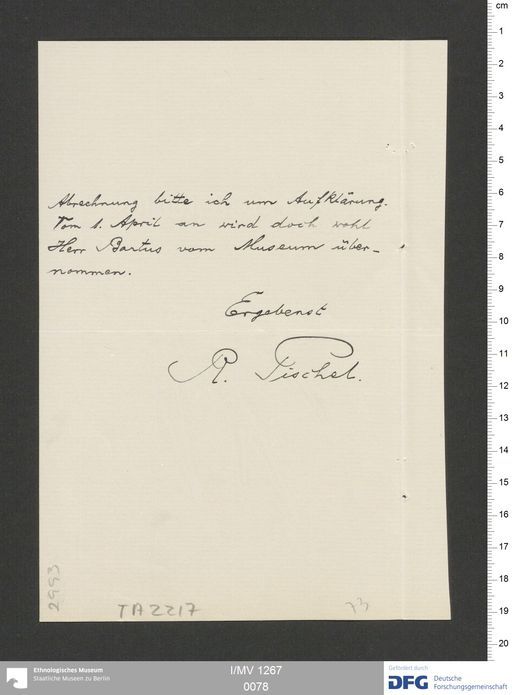 Abrechnung bitte ich um Aufklärung.
Vom 1. April an wird doch wohl
Herr Bartus vom Museum über-
nommen.
Ergebenst
R. Pischel.
2993
TA 2217
73
cm
1
2
3
4
5
6
7
8
9
10
11
12
13
14
15
16
17
18
19
20
Ethnologisches Museum
Staatliche Museen zu Berlin
I/MV 1267
0078
Gefördert durch
DFG Deutsche
Forschungsgemeinschaft